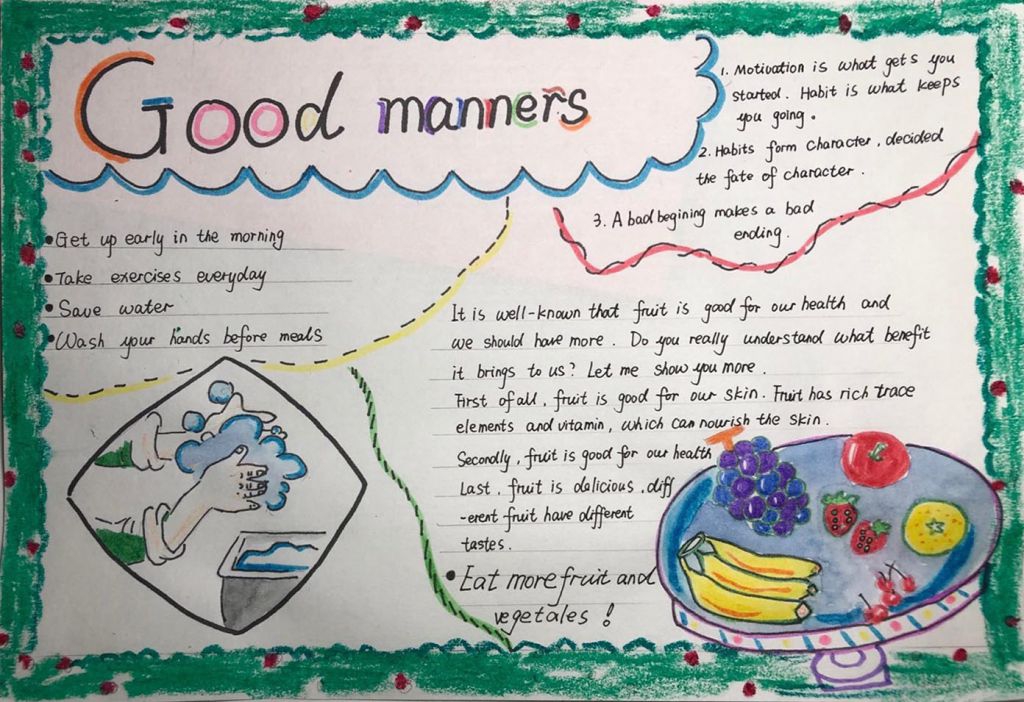 Good manners
1. Motivation is what gets you
started. Habit is what keeps
you going.
2. Habits form character, decided
the fate of character.
3. A bad begining makes a bad
ending.
•Get up early in the morning
•Take exercises everyday
•Save water
•Wash your hands before meals
It is well-known that fruit is good for our health and
we should have more. Do you really understand what benefit
it brings to us? Let me show you more.
First of all, fruit is good for our skin. Fruit has rich trace
elements and vitamin, which can nourish the skin.
Secondly, fruit is good for our health
Last, fruit is delicious, diff
-erent fruit have different
tastes.
•Eat more fruit and
vegetales!